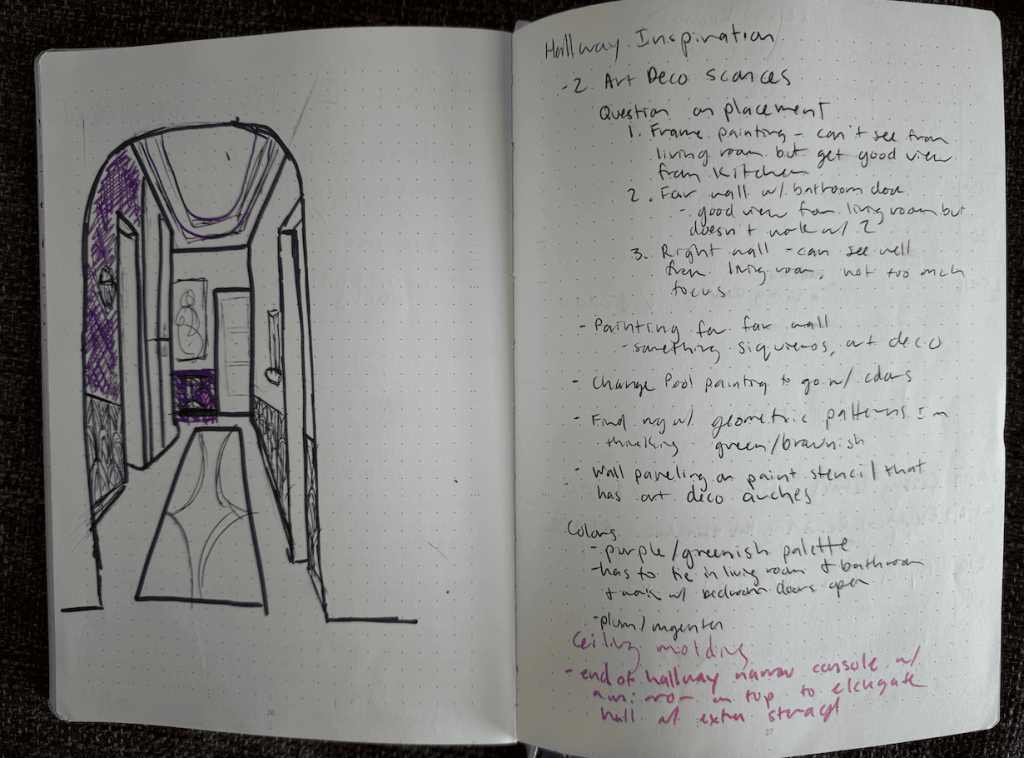 Hallway Inspiration
- 2 Art Deco scances
Question on placement
1. Frame painting - can't see from
living room but get good view
from Kitchen
2. Far wall w/ bathroom door
- good view from living room but
doesn't work w/ 2
3. Right wall - can see well
from living room, not too much
focus
- Painting for far wall
- something siquieros, art deco
- Change Pool painting to go w/ colors
- Find rug w/ geometric patterns Im
thinking green/brownish
- Wall paneling or paint stencil that
has art deco arches
Colors
- purple/greenish palette
- has to tie in living room + bathroom
+ work w/ bedroom doors open
- plum/magenta
Ceiling molding
- end of hallway narrow console w/
a mirror on top to elongate
hall w/ extra storage
26
27